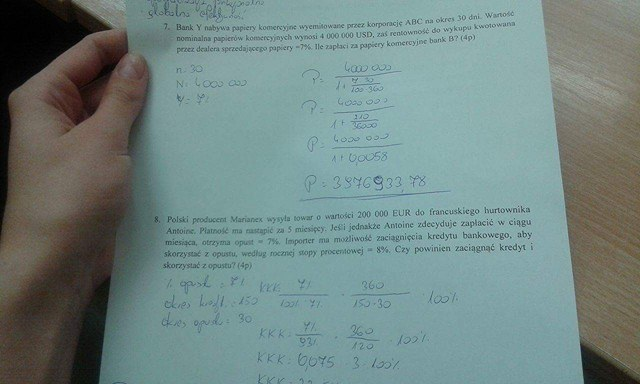 globalne
7. Bank Y nabywa papiery komercyjne wyemitowane przez korporację ABC na okres 30 dni. Wartość
nominalna papierów komercyjnych wynosi 4 000 000 USD, zaś rentowność do wykupu kwotowana
przez dealera sprzedającego papiery =7%. Ile zapłaci za papiery komercyjne bank B? (4p)
n: 30
N: 4000 000
Y: 7%
P = 4000 000
1 + 7·30
100·360
P = 4000 000
1 + 210
36000
P = 4000 000
1+0,0058
P = 3976933,78
8. Polski producent Marianex wysyła towar o wartości 200 000 EUR do francuskiego hurtownika
Antoine. Płatność ma nastąpić za 5 miesięcy. Jeśli jednakże Antoine zdecyduje zapłacić w ciągu
miesiąca, otrzyma opust = 7%. Importer ma możliwość zaciągnięcia kredytu bankowego, aby
skorzystać z opustu, według rocznej stopy procentowej = 8%. Czy powinien zaciągnąć kredyt i
skorzystać z opustu? (4p)
% opust : 7%
okres kredyt. : 150
okres opustu : 30
KKK: 7% · 360 · 100%
100%-7% 150-30
KKK = 7% · 360 · 100%
93% 120
KKK = 0,075 · 3 · 100%
KKK =